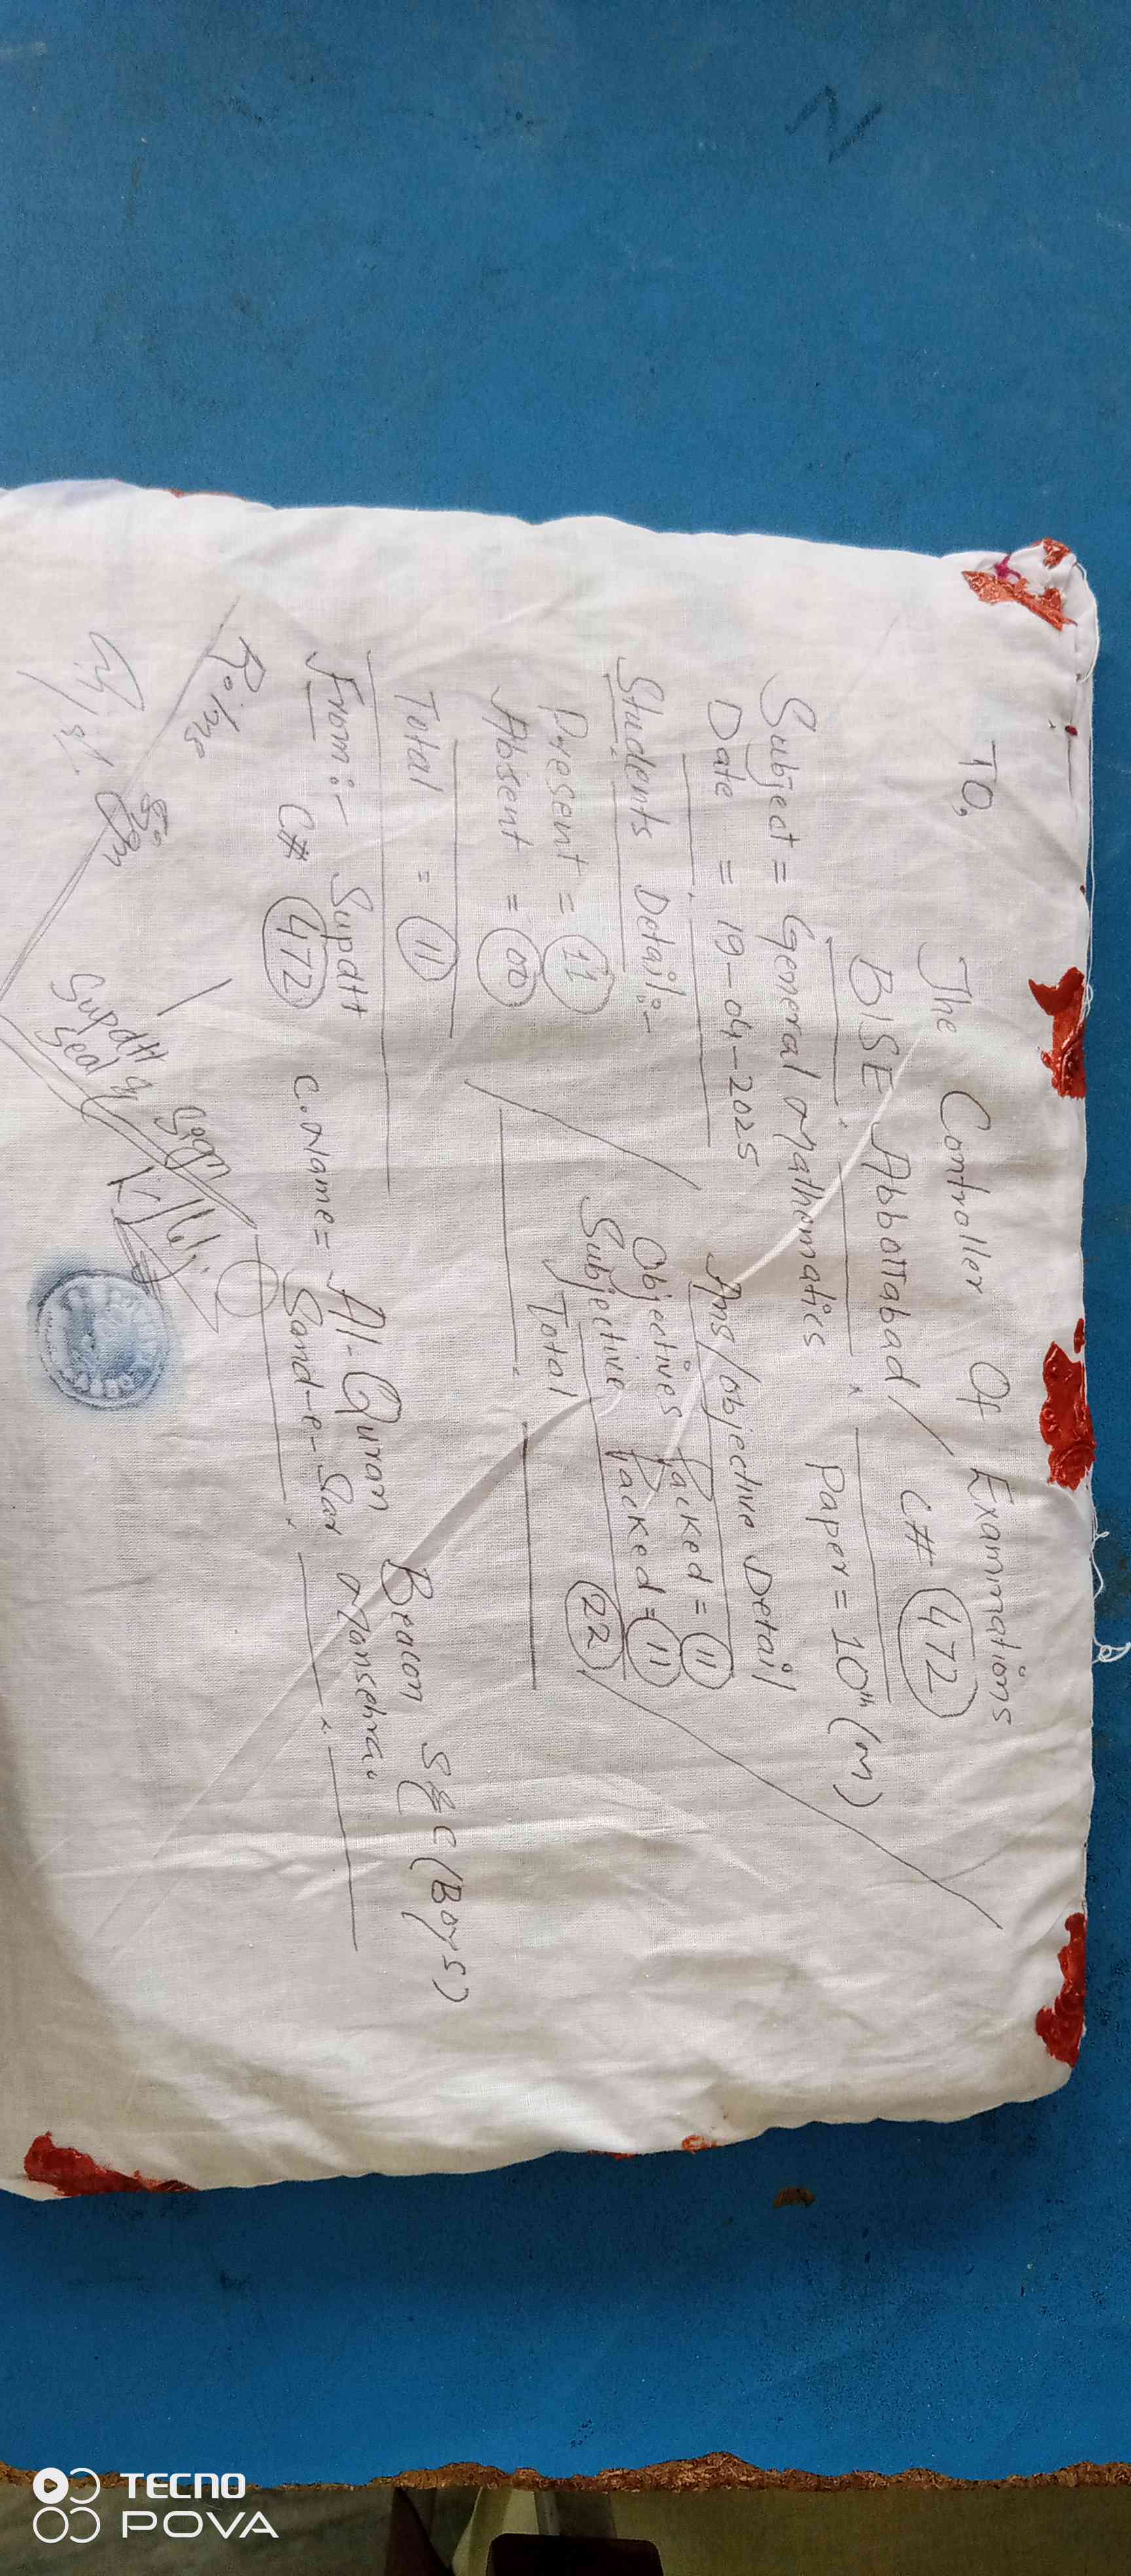 TO,
The Controller Of Examinations
BISE Abbottabad / C# 472
Subject = General Mathematics Paper = 10th (M)
Date = 19-04-2025
Students Detail:-
Present = 11
Absent = 00
Total = 11
Ans/objective Detail
Objectives Packed = 11
Subjective Packed = 11
Total 22
From:- Supdtt
C# 472 C.Name= Al-Quran Beacon SEC (Boys)
Sand-e-Sar Mansehra.
Police Sign
Supdtt Sign
Seal
TECNO
POVA